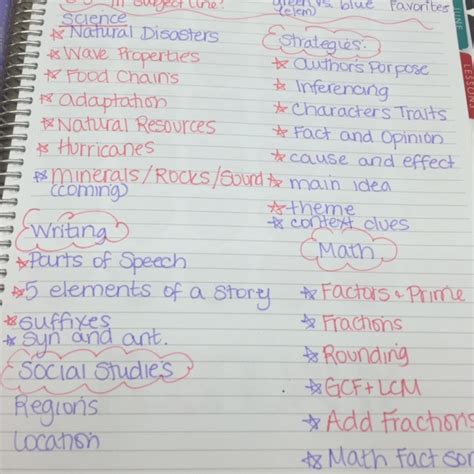 in Subject Line?
green vs. blue Favorites
(elem)
Science
Natural Disasters
Wave Properties
Food Chains
Adaptation
Natural Resources
Hurricanes
Minerals/Rocks/Sound
(coming)
Strategies:
authors Purpose
Inferencing
Characters Traits
Fact and Opinion
cause and effect
main idea
theme
context clues
Writing
Parts of Speech
5 elements of a story
suffixes
syn and ant.
Social Studies
Regions
Location
Math
Factors + Prime
Fractions
Rounding
GCF + LCM
Add Fractions
Math Fact Sor
LINE
LESSON